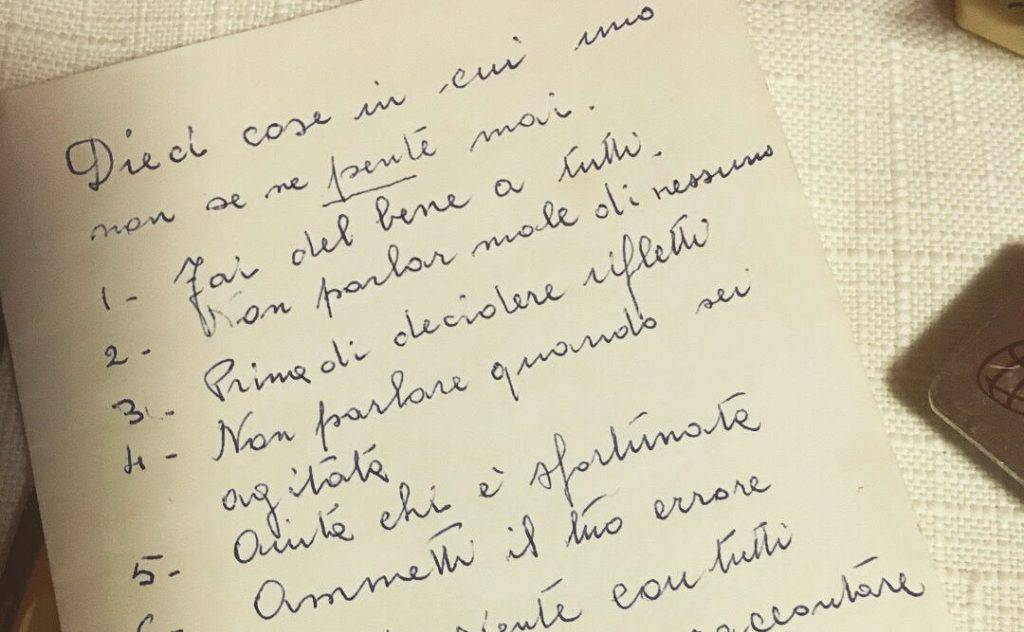 Dieci cose in cui uno
non se ne pente mai.
1 - Fai del bene a tutti.
2 - Non parlar male di nessuno
3 - Prima di decidere rifletti
4 - Non parlare quando sei
agitato
5 - Aiuta chi è sfortunato
6 Ammetti il tuo errore
con tutti